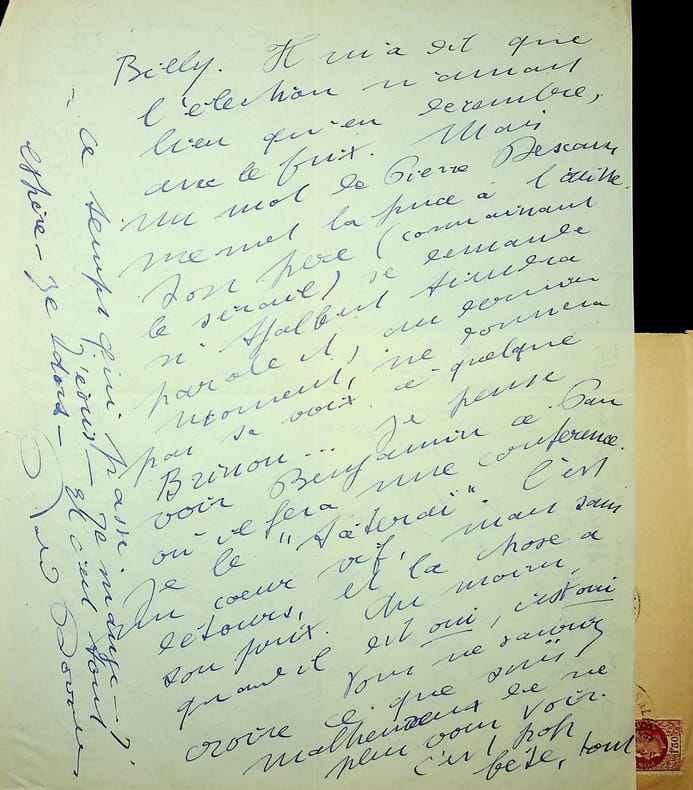 Billy. Il m'a dit que
l'élection n'aurait
lieu qu'en décembre,
avec le prix. Mais
un mot de Pierre Descaves
me met la puce à l'oreille.
Son père (connaissant
le sérail) se demande
si tiendra
parole et, au dernier
moment, ne donnera
pas sa voix à quelque
Brinon... Je pense
voir Benjamin à Pau
où il fera une conférence.
Je le "tâterai". C'est
un coeur vif, mais sans
détours, et la chose a
son prix. Au moins,
quand il est oui, c'est oui
Vous ne sauriez
croire ce que suis
malheureux de ne
pas vous voir.
C'est trop
bête, tout
ce temps qui passe.
J'écris — Je mange — J'
espère — Je dors — et c'est tout